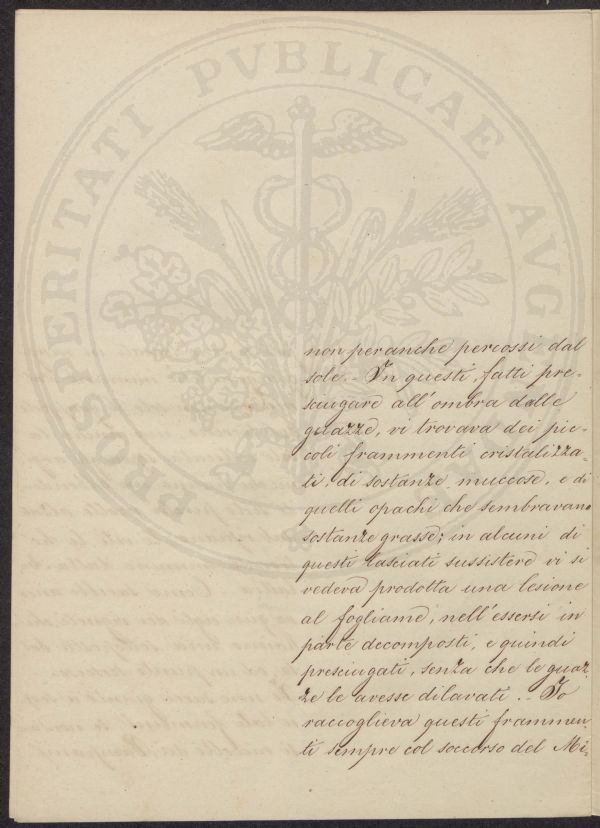 PROSPERITATI PVBLICAE AVG
non peranche percossi dal
sole. - In questi, fatti pre-
sciugare all'ombra dalle
guazze, vi trovava dei pic-
coli frammenti cristalizza-
ti, di sostanze muccose, e di
quelli opachi che sembravano
sostanze grasse; in alcuni di
questi lasciati sussistere vi si
vedeva prodotta una lesione
al fogliame, nell'essersi in
parte decomposti, e quindi
presciugati, senza che le guaz-
ze le avesse dilavati. - Io
raccoglieva questi frammen-
ti sempre col soccorso del Mi-